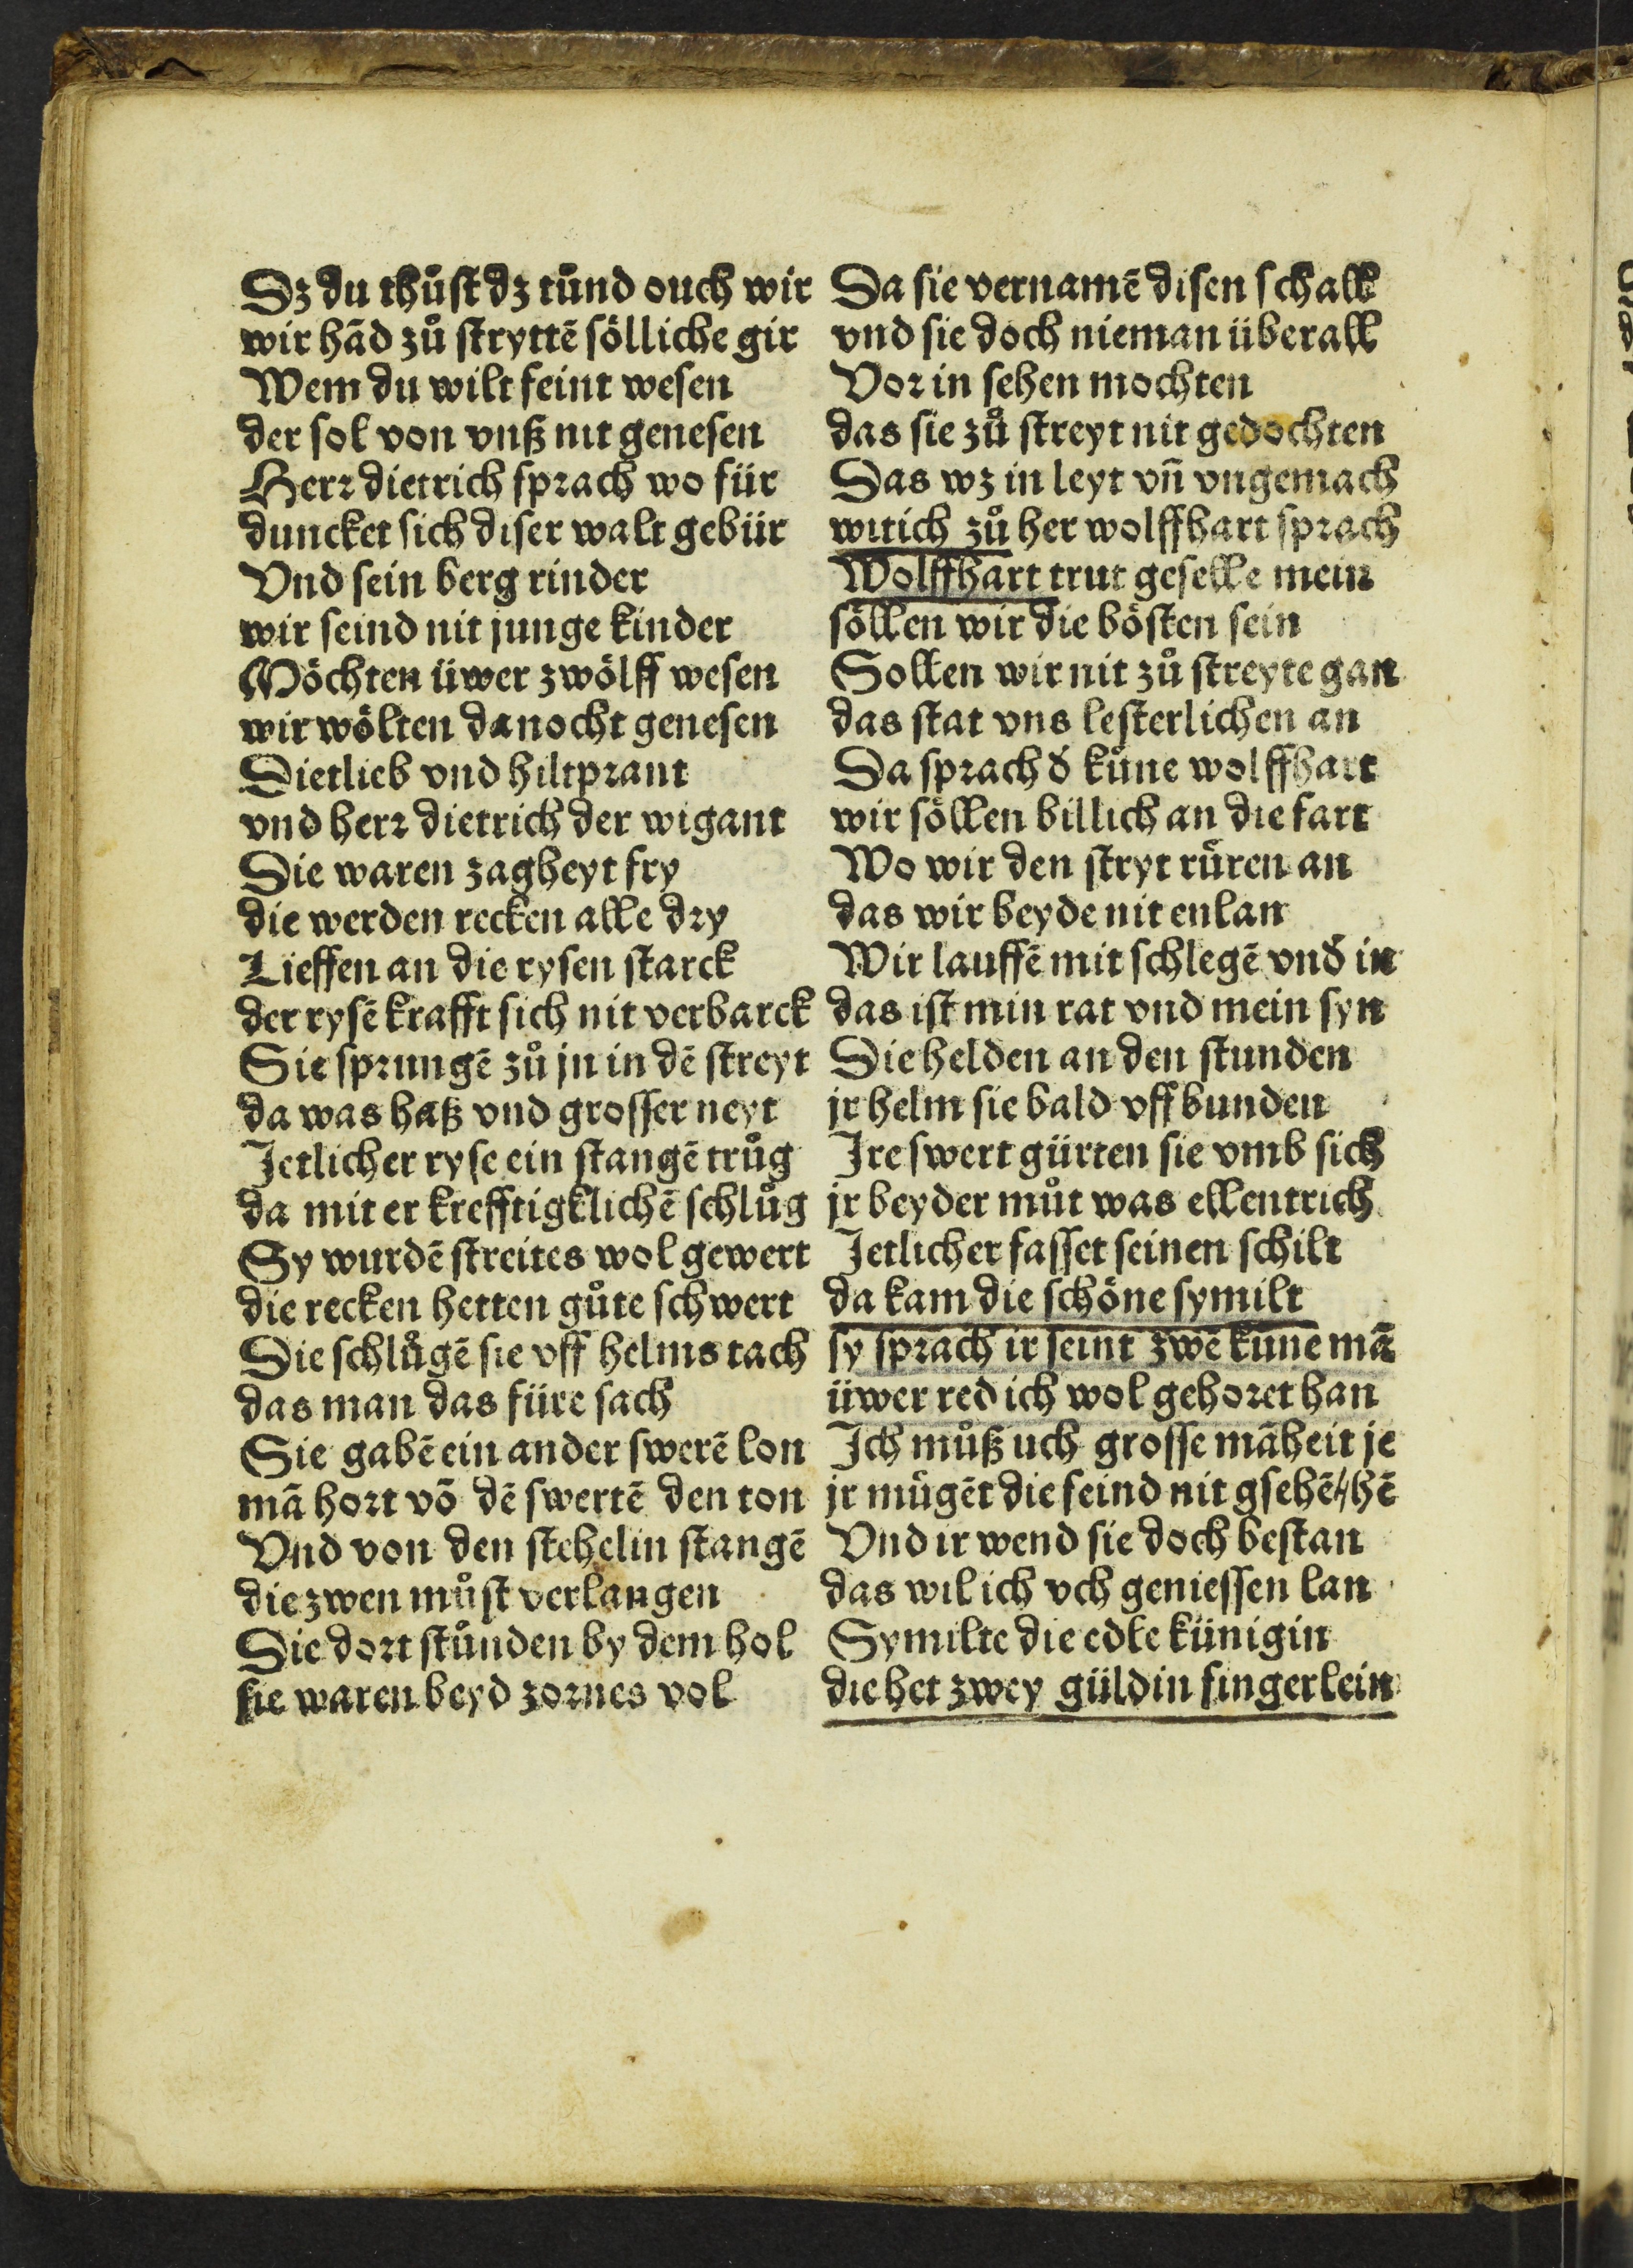 Dz du thůst dz tůnd ouch wir
wir hād zů stryttē sölliche gir
Wem du wilt feint wesen
der sol von vnß nit genesen
Herr dietrich sprach wo für
duncket sich diser walt gebür
Vnd sein berg rinder
wir seind nit junge kinder
Möchten üwer zwölff wesen
wir wölten danocht genesen
Dietlieb vnd hiltprant
vnd herr dietrich der wigant
Sie waren zagheyt fry
die werden recken alle dry
Lieffen an die rysen starck
der rysē krafft sich nit verbarck
Sie sprungē zů jn in dē streyt
da was haß vnd grosser neyt
Jetlicher ryse ein stangē trůg
da mit er krefftigklichē schlůg
Sy wurdē streites wol gewert
die recken hetten gůte schwert
Die schlůgē sie vff helms tach
das man das füre sach
Sie gabē ein ander swerē lon
mā hort vō dē swertē den ton
Vnd von den stehelin stangē
die zwen můst verlangen
Die dort stůnden by dem hol
sie waren beyd zornes vol
Da sie vernamē disen schall
vnd sie doch nieman überall
Vor in sehen mochten
das sie zů streyt nit gedochten
Das wz in leyt vn̄ vngemach
witich zů her wolffhart sprach
Wolffhart trut geselle mein
söllen wir die bösten sein
Sollen wir nit zů streyte gan
das stat vns lesterlichen an
Da sprach d̕ küne wolffhart
wir söllen billich an die fart
Wo wir den stryt rüren an
das wir beyde nit enlan
Wir lauffē mit schlegē vnd̕ in
das ist min rat vnd mein syn
Die helden an den stunden
jr helm sie bald vff bunden
Ire swert gürten sie vmb sich
jr beyder můt was ellentrich
Jetlicher fasset seinen schilt
da kam die schöne symilt
sy sprach ir seint zwē küne mā
üwer red ich wol gehoret han
Ich můß uch grosse māheit je
jr mügēt die feind nit gsehē/hē
Vnd ir wend sie doch bestan
das wil ich vch geniessen lan
Symilte die edle künigin
die het zwey güldin fingerlein